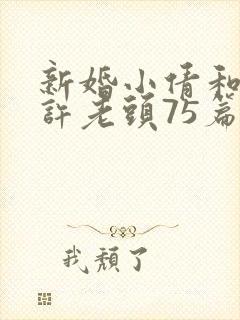 新婚小倩和
許老頭75篇
我頹了